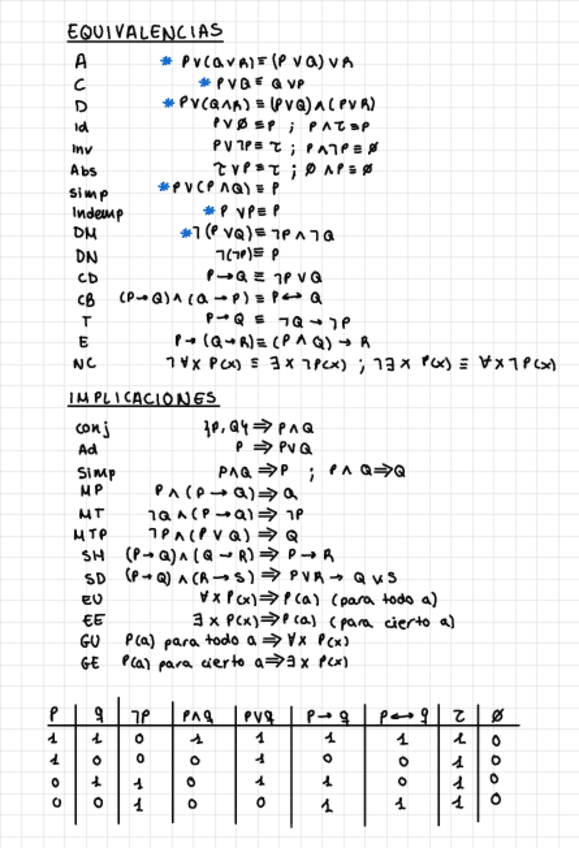 EQUIVALENCIAS
A * P∨(Q∨R)≡(P∨Q)∨R
C * P∨Q≡ Q∨P
D * P∨(Q∧R)≡(P∨Q)∧(P∨R)
Id P∨Ø≡P ; P∧τ≡P
Inv P∨¬P≡ τ ; P∧¬P≡Ø
Abs τ∨P≡τ ; Ø∧P≡Ø
Simp * P∨(P∧Q)≡ P
Indemp * P∨P≡P
DM * ¬(P∨Q)≡ ¬P∧¬Q
DN ¬(¬P)≡ P
CD P→Q ≡ ¬P∨Q
CB (P→Q)∧(Q→P)≡P↔Q
T P→Q ≡ ¬Q→¬P
E P→(Q→R)≡(P∧Q)→R
NC ¬∀x P(x) ≡ ∃x¬P(x) ; ¬∃x P(x) ≡ ∀x¬P(x)
IMPLICACIONES
conj {P,Q}⇒P∧Q
Ad P ⇒ P∨Q
Simp P∧Q⇒P ; P∧Q⇒Q
MP P∧(P→Q)⇒Q
MT ¬Q∧(P→Q)⇒¬P
MTP ¬P∧(P∨Q)⇒ Q
SH (P→Q)∧(Q→R)⇒ P→R
SD (P→Q)∧(R→S)⇒ P∨R→Q∨S
EU ∀x P(x)⇒P(a) (para todo a)
EE ∃x P(x)⇒P(a) (para cierto a)
GU P(a) para todo a⇒∀x P(x)
GE P(a) para cierto a⇒∃x P(x)
P q ¬P P∧q P∨q P→q P↔q τ Ø
1 1 0 1 1 1 1 1 0
1 0 0 0 1 0 0 1 0
0 1 1 0 1 1 0 1 0
0 0 1 0 0 1 1 1 0